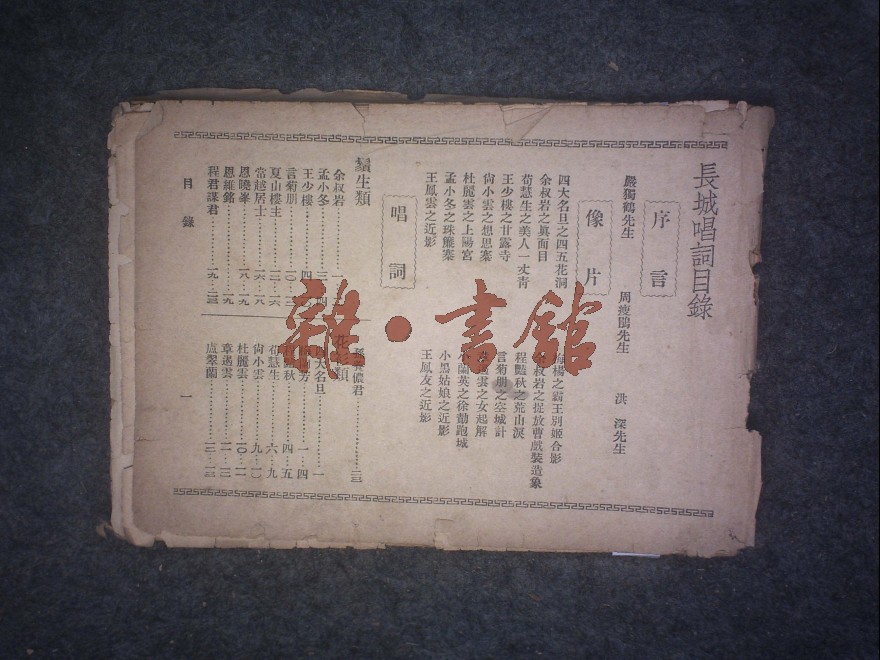 長城唱詞目錄
序言
嚴獨鶴先生 周瘦鵑先生 洪深先生
像片
四大名旦之四五花洞
余叔岩之眞面目
荀慧生之美人一丈青
王少樓之甘露寺
尙小雲之想思寨
杜麗雲之上陽宮
孟小冬之珠簾寨
王鳳雲之近影
楊之霸王別姬合影
叔岩之捉放曹戲裝造象
程豔秋之荒山淚
言菊朋之空城計
雲之女起解
蘭英之徐勣跑城
小黑姑娘之近影
王鳳友之近影
唱詞
鬚生類
余叔岩
孟小冬
王少樓
言菊朋
夏山樓主
常越居士
恩曉峯
恩維銘
程君謀君
儂君
類
四大名旦
芳
秋
荀慧生
尙小雲
杜麗雲
章遏雲
盧翠蘭
目錄 一
雜·書館